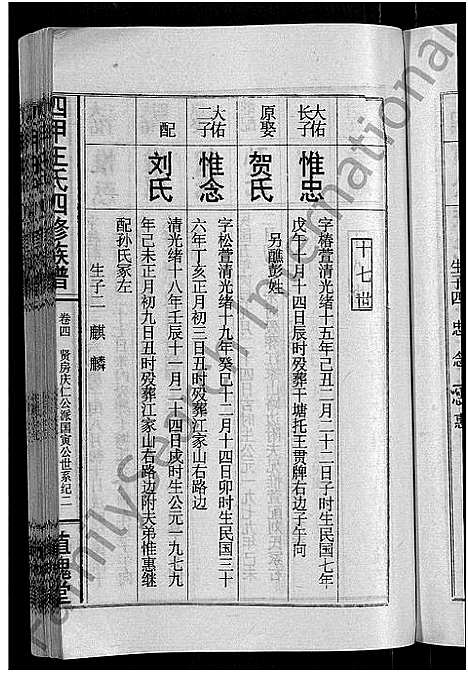 十七世
大佑长子 惟忠
字椿萱清光绪十五年己丑二月二十二日子时生民国七年
戊午十月十四日辰时殁葬干塘托王贯牌右边子午向
原娶 贺氏
另醮彭姓
大佑二子 惟念
字松萱清光绪十九年癸巳十二月十四日卯时生民国三十
六年丁亥正月初三日丑时殁葬江家山右路边
配 刘氏
清光绪十八年壬辰十一月二十四日戌时生公元一九七九
年己未正月初九日丑时殁葬江家山右路边附夫弟惟惠继
配孙氏冢左
生子二 麒 麟
四甲王氏四修族谱
卷四 贤房庆仁公派国寅公世系纪二
植槐堂
生子四 忠 念 惠
FamilySearch International